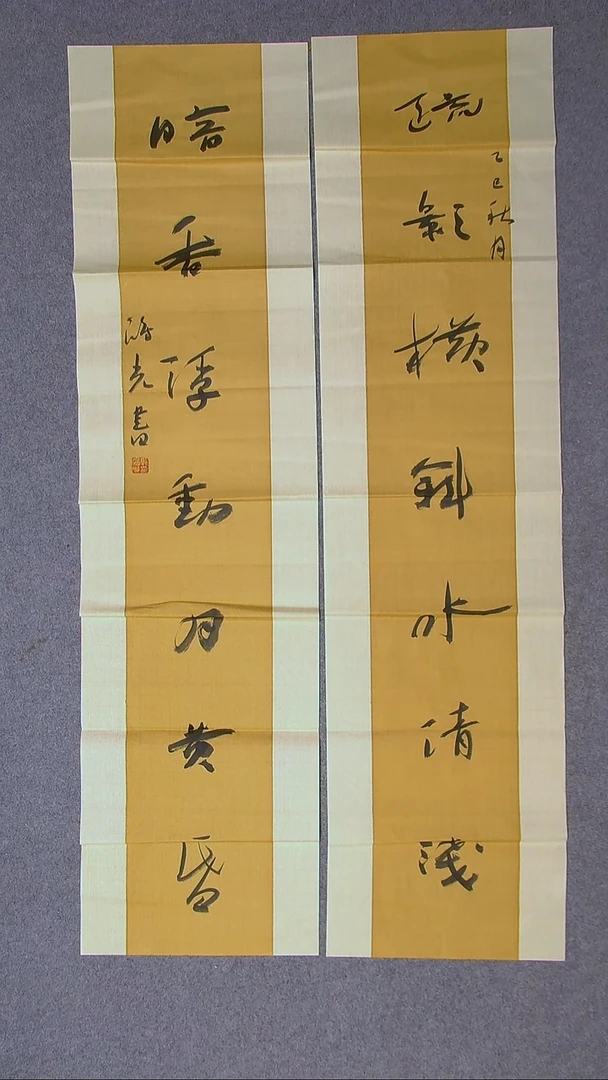 疏影橫斜水清淺
乙巳秋月
暗香浮動月黃昏
光書